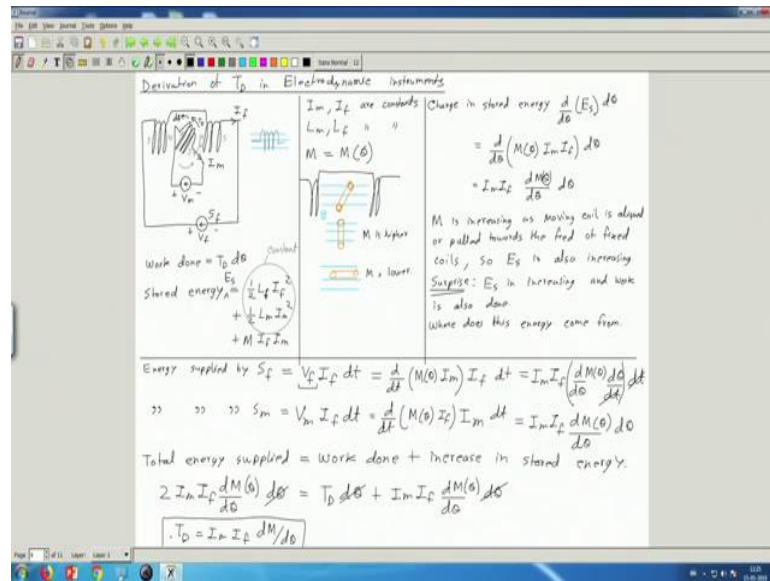 Journal
File Edit View Journal Tools Options Help
Sans Normal 12
Derivation of T_D in Electrodynamic instruments
I_f
T_D
I_m
+ V_m -
S_f
+ V_f -
Work done = T_D dθ
Stored energy E_s = 1/2 L_f I_f^2
+ 1/2 L_m I_m^2
+ M I_f I_m
constant
I_m, I_f are constants
L_m, L_f " "
M = M(θ)
θ
M is higher
M is lower
Change in stored energy d/dθ (E_s) dθ
= d/dθ (M(θ) I_m I_f) dθ
= I_m I_f dM(θ)/dθ dθ
M is increasing as moving coil is aligned
or pulled towards the field of fixed
coils, so E_s is also increasing
Surprise: E_s is increasing and work
is also done.
Where does this energy come from.
Energy supplied by S_f = V_f I_f dt = d/dt (M(θ) I_m) I_f dt = I_m I_f (d M(θ)/dθ dθ/dt) dt
" " " S_m = V_m I_f dt = d/dt (M(θ) I_f) I_m dt = I_m I_f dM(θ)/dθ dθ
Total energy supplied = Work done + increase in stored energy.
2 I_m I_f dM(θ)/dθ dθ = T_D dθ + I_m I_f dM(θ)/dθ dθ
. T_D = I_m I_f dM/dθ
Page 9 of 11 Layer: Layer 1